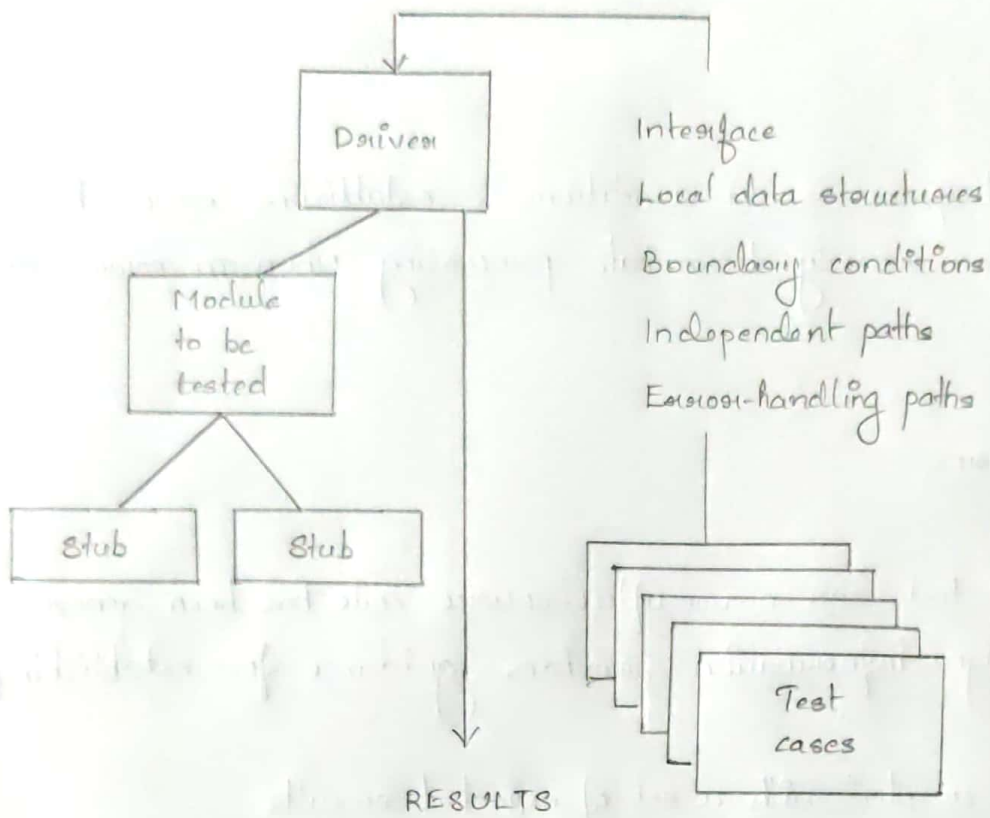 Driver
Interface
Local data structures
Boundary conditions
Independent paths
Error-handling paths
Module
to be
tested
Stub
Stub
Test
cases
RESULTS